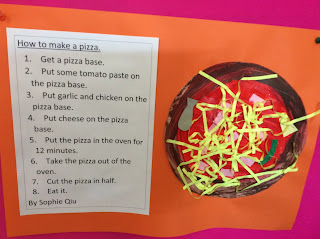 How to make a pizza.
1. Get a pizza base.
2. Put some tomato paste on
the pizza base.
3. Put garlic and chicken on the
pizza base.
4. Put cheese on the pizza
base.
5. Put the pizza in the oven for
12 minutes.
6. Take the pizza out of the
oven.
7. Cut the pizza in half.
8. Eat it.
By Sophie Qiu